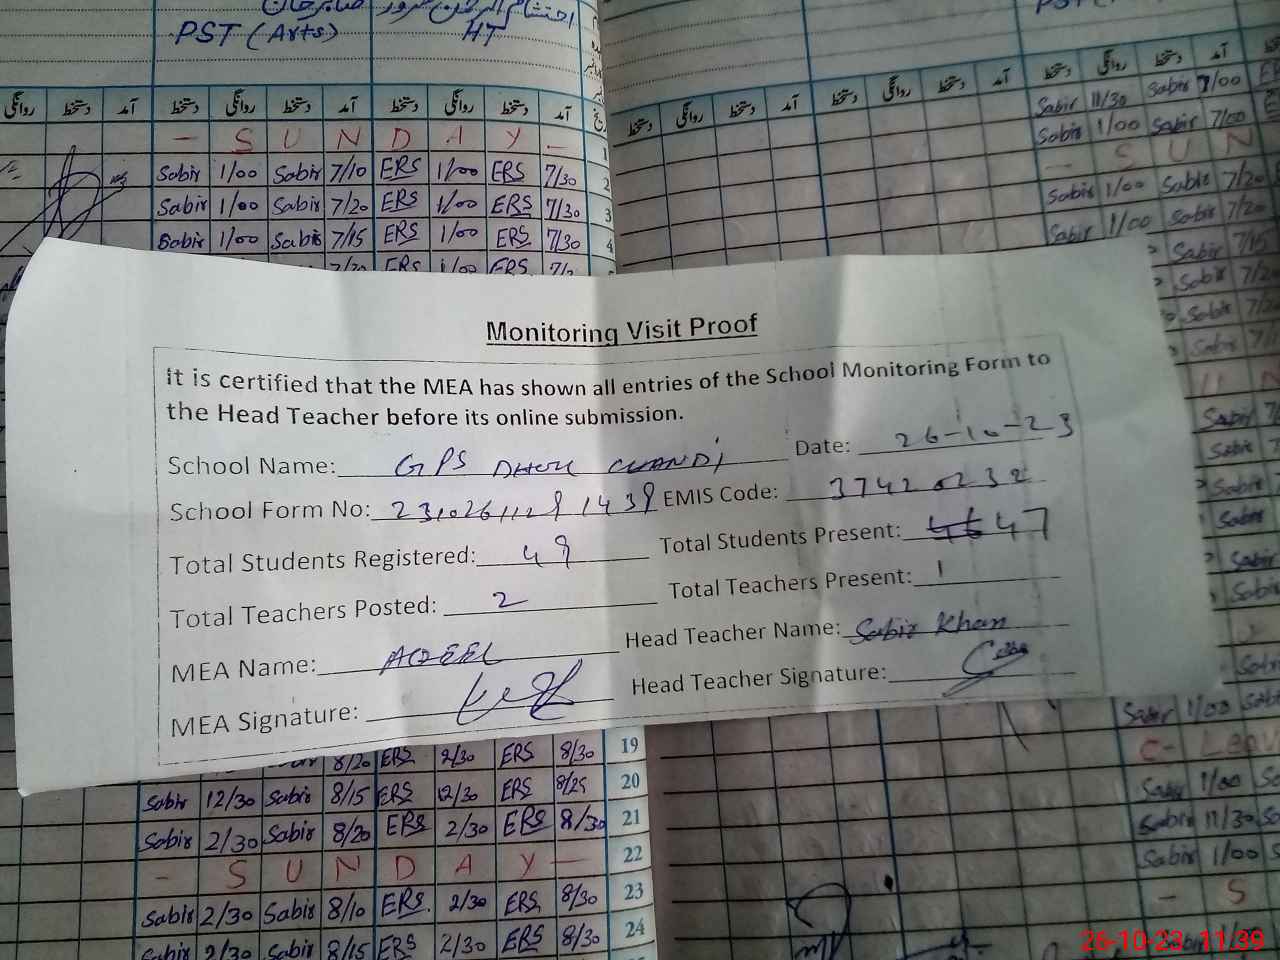 احتشام الرحمن سرور صابر خان
PST (Arts) HT
روانگی دستخط آمد دستخط روانگی دستخط آمد دستخط روانگی دستخط آمد
دستخط روانگی دستخط آمد دستخط روانگی دستخط آمد دستخط روانگی دستخط آمد
— S U N D A Y — 1
Sabir 1/00 Sabir 7/10 ERS 1/00 ERS 7/30 2
Sabir 1/00 Sabir 7/20 ERS 1/00 ERS 7/30 3
Sabir 1/00 Sabir 7/15 ERS 1/00 ERS 7/30 4
7/20 ERS 1/00 ERS
Sabir 11/30 Sabir 7/00
Sabir 1/00 Sabir 7/00
— S U N
Sabir 1/00 Sabir 7/20
Sabir 1/00 Sabir 7/20
Sabir 7/15
Sabir 7/20
Sabir 7/20
Monitoring Visit Proof
It is certified that the MEA has shown all entries of the School Monitoring Form to
the Head Teacher before its online submission.
School Name: GPS DHOK CHANDI Date: 26-10-23
School Form No: 23102611291439 EMIS Code: 37420232
Total Students Registered: 49 Total Students Present: 47
Total Teachers Posted: 2 Total Teachers Present: 1
MEA Name: AQEEL Head Teacher Name: Sabir Khan
MEA Signature: Head Teacher Signature:
8/20 ERS 2/30 ERS 8/30 19
Sabir 12/30 Sabir 8/15 ERS 12/30 ERS 8/25 20
Sabir 2/30 Sabir 8/20 ERS 2/30 ERS 8/30 21
— S U N D A Y — 22
Sabir 2/30 Sabir 8/10 ERS 2/30 ERS 8/30 23
Sabir 2/30 Sabir 8/15 ERS 2/30 ERS 8/30 24
Sabir 1/00 Sabir
C- Leav
Sabir 1/00
Sabir 11/30
Sabir 1/00
— S
26-10-23 11:39